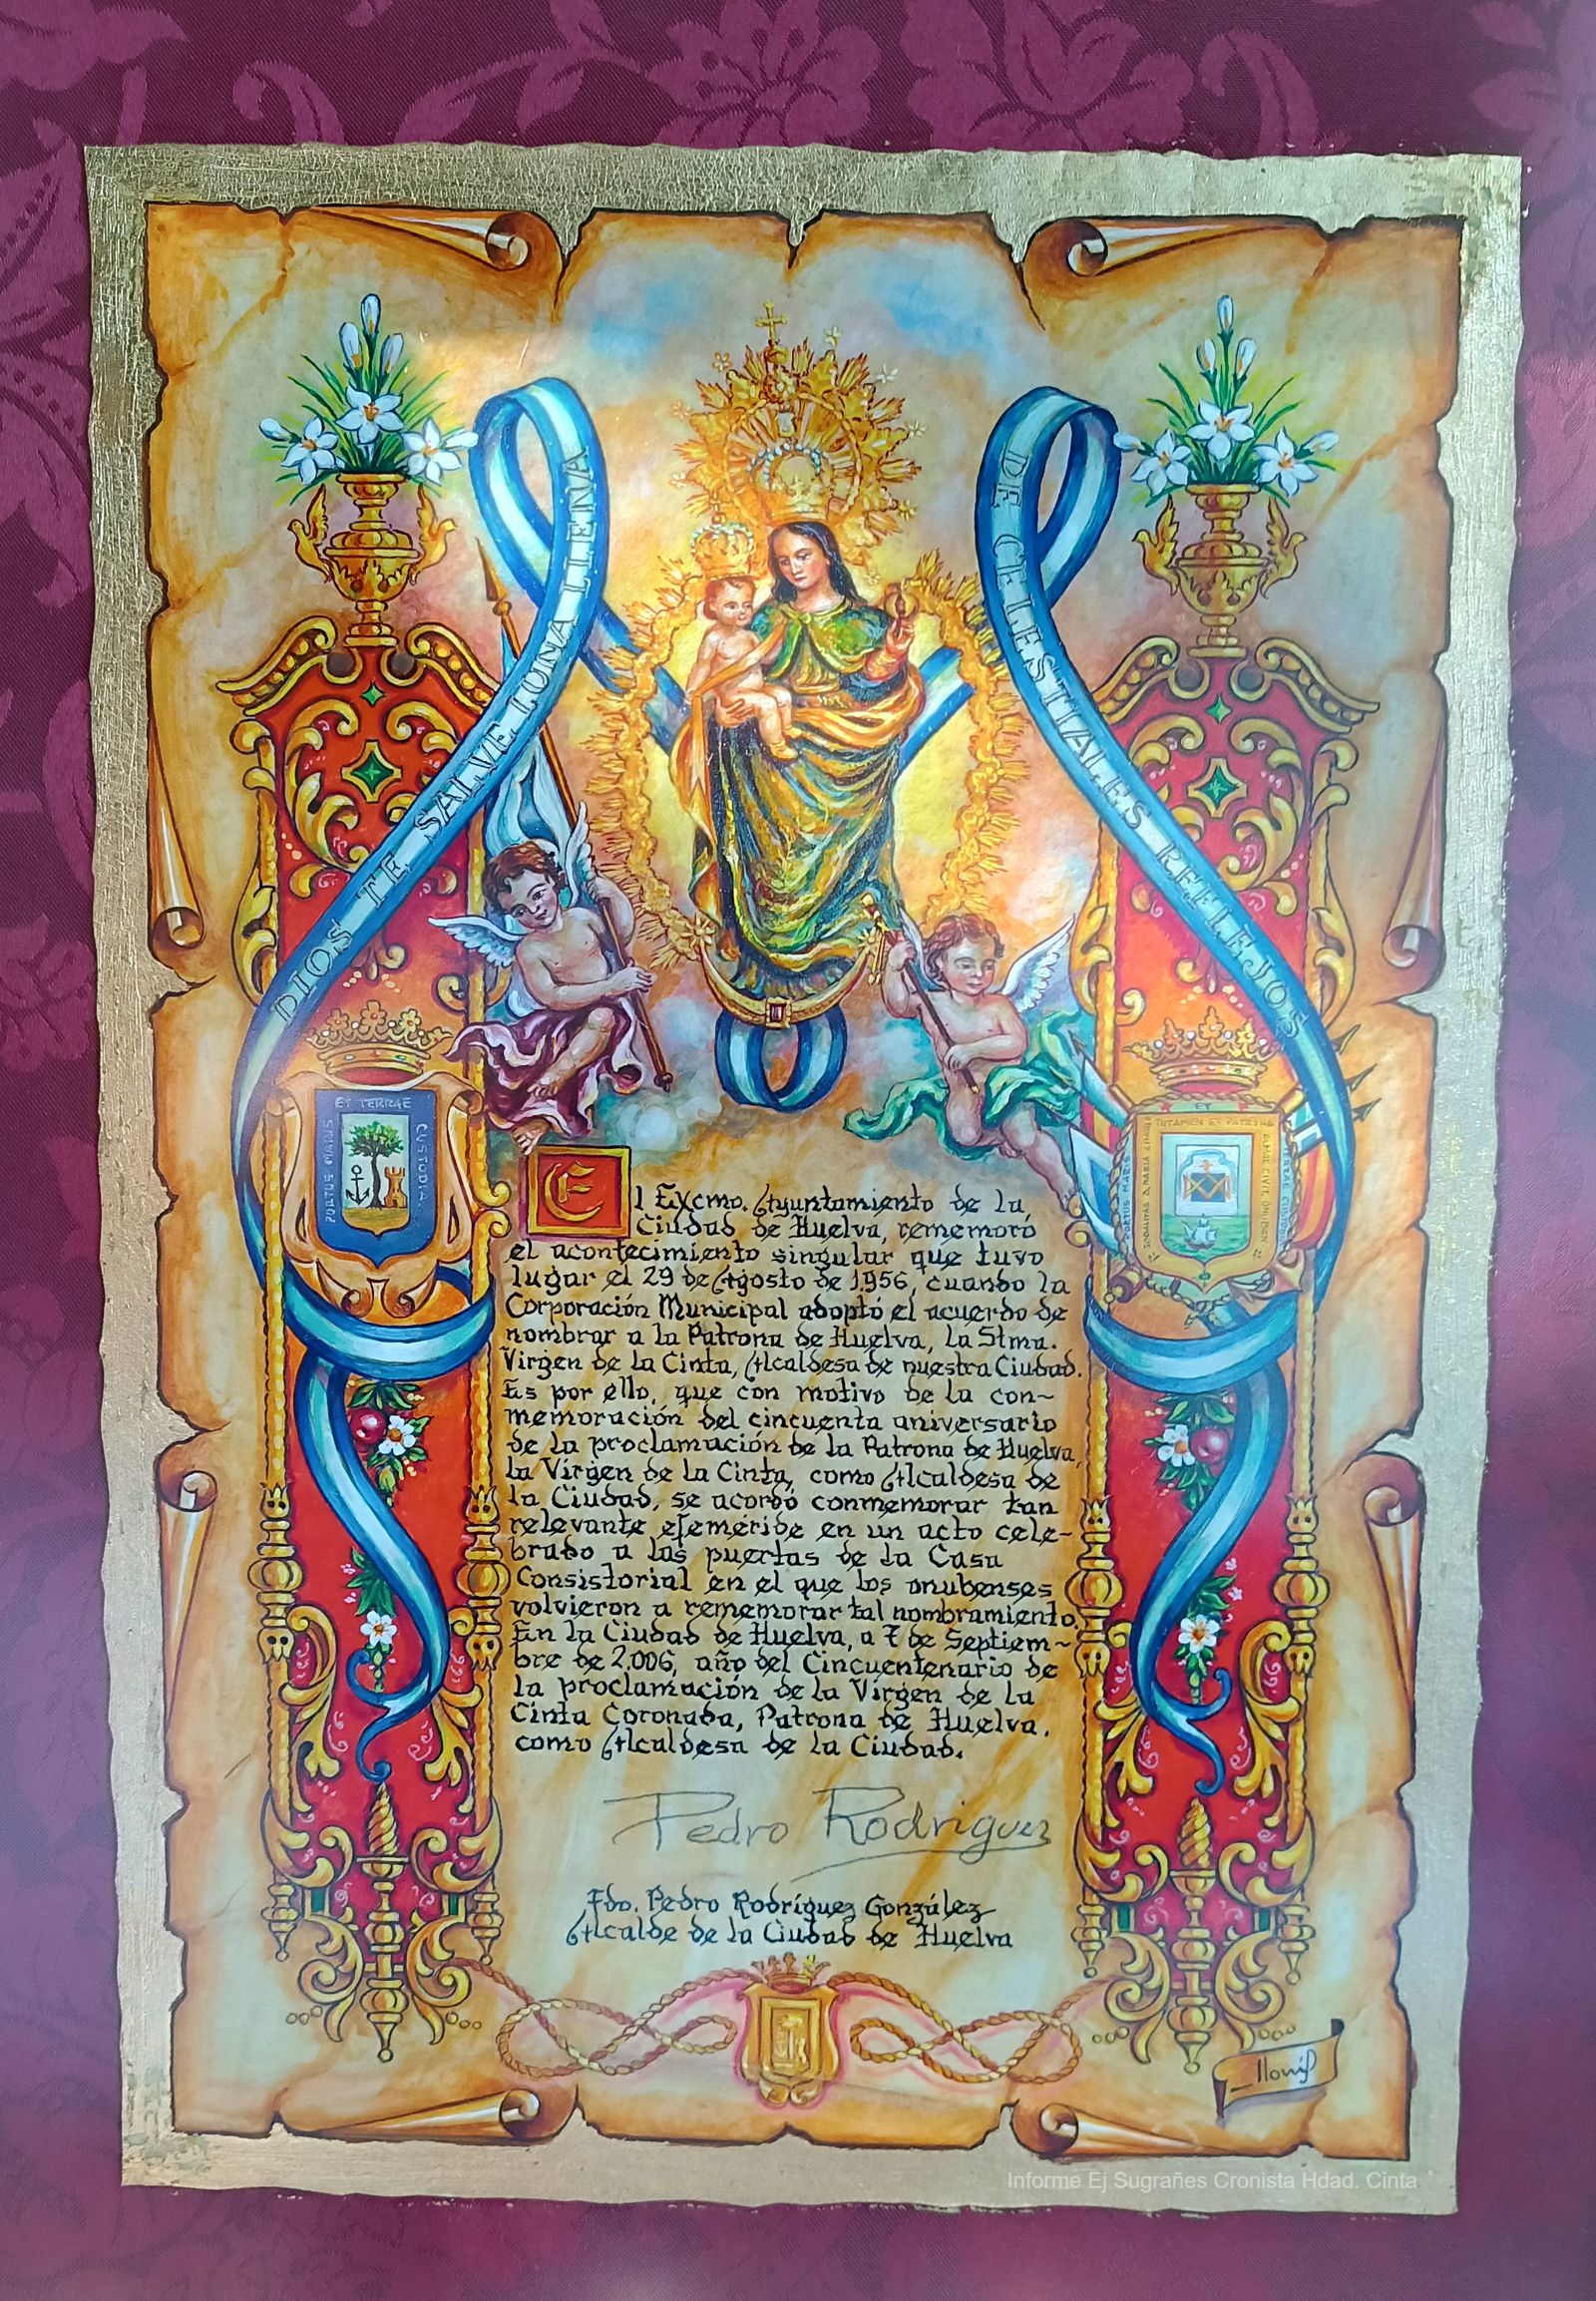 DIOS TE SALVE LUNA LLENA
DE CELESTIALES REFLEJOS
PORTUS MARIS
ET TERRAE
CUSTODIA
ET
TUTAMEN ET PATRONA
PORTUS MARIS
El Excmo. Ayuntamiento de la
Ciudad de Huelva, rememoró
el acontecimiento singular que tuvo
lugar el 29 de Agosto de 1.956, cuando la
Corporación Municipal adoptó el acuerdo de
nombrar a la Patrona de Huelva, la Stma.
Virgen de la Cinta, Alcaldesa de nuestra Ciudad.
Es por ello, que con motivo de la con~
memoración del cincuenta aniversario
de la proclamación de la Patrona de Huelva,
la Virgen de la Cinta, como Alcaldesa de
la Ciudad, se acordó conmemorar tan
relevante efeméride en un acto cele~
brado a las puertas de la Casa
Consistorial en el que los onubenses
volvieron a rememorar tal nombramiento.
En la Ciudad de Huelva, a 7 de Septiem~
bre de 2.006, año del Cincuentenario de
la proclamación de la Virgen de la
Cinta Coronada, Patrona de Huelva,
como Alcaldesa de la Ciudad.
Pedro Rodriguez
Fdo. Pedro Rodríguez González
Alcalde de la Ciudad de Huelva
Informe Ej Sugrañes Cronista Hdad. Cinta